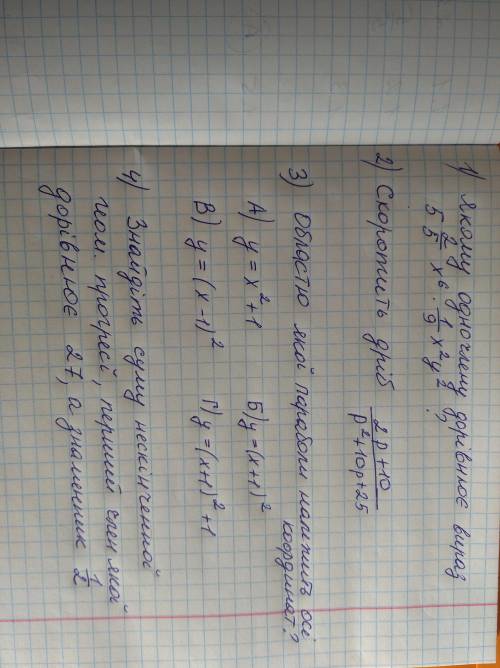 1) Якому одночлену дорівнює вираз
5 2/5 x⁶ · 1/9 x² y² ?
2) Скоротить дріб (2p+10)/(p²+10p+25)
3) Областю якої параболи належить осі
координат?
А) y = x² + 1 Б) y = (x+1)²
В) y = (x-1)² Г) y = (x+1)² + 1
4) Знайдіть суму нескінченної
геом. прогресі, перший член якої
дорівнює 27, а знаменник 1/2